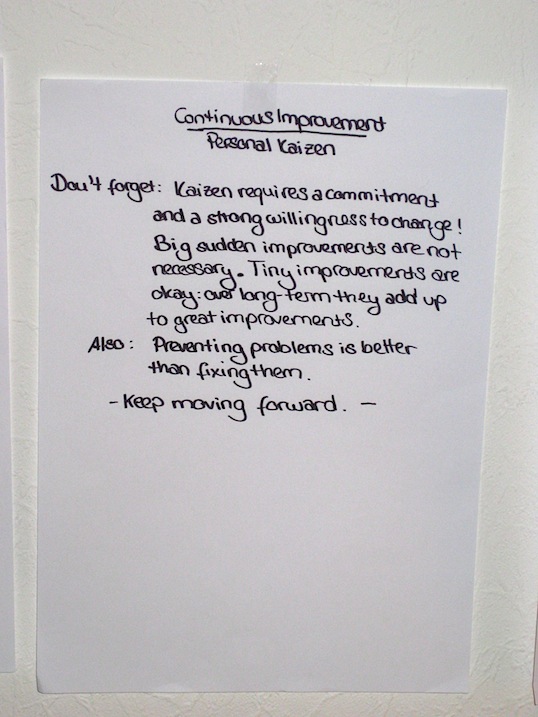 Continuous Improvement
Personal Kaizen
Don't forget: Kaizen requires a commitment
and a strong willingness to change!
Big sudden improvements are not
necessary. Tiny improvements are
okay: over long-term they add up
to great improvements.
Also: Preventing problems is better
than fixing them.
- Keep moving forward. -